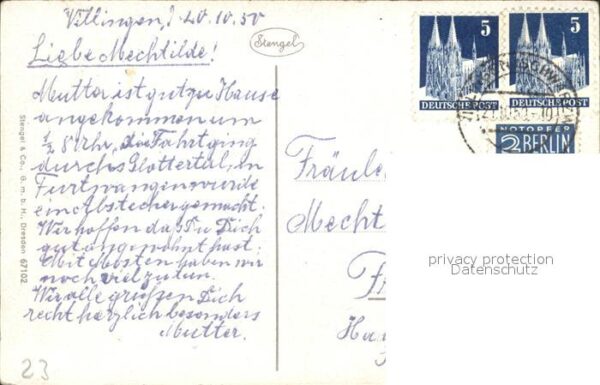 Villingen, 20.10.50
Liebe Mechtilde!
Mutter ist gut zu Hause
angekommen um
1/2 8 Uhr, die Fahrt ging
durchs Glottertal, in
Furtwangen wurde
ein Abstecher gemacht.
Wir hoffen daß Du Dich
gut angewöhnt hast.
Mit Obsten haben wir
noch viel zu tun.
Wir alle grüßen Dich
recht herzlich besonders
Mutter.
23
Stengel & Co., G. m. b. H., Dresden 67102
Stengel
5
5
DEUTSCHE POST
DEUTSCHE POST
NOTOPFER
2 BERLIN
Fräule
Mecht
privacy protection
Datenschutz